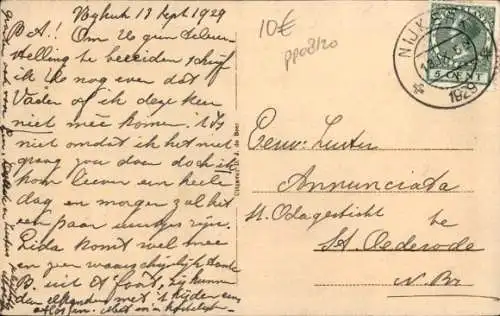 Nijkerk 13 Sept. 1929
B. A! Om U geen teleur-
stelling te bereiden schrijf
ik U nog even dat
Vader of ik deze keer
niet mee komen. 't Is
niet omdat ik het niet
graag zou doen doch ik
kom liever een heele
dag en morgen zal het
een paar uurtjes zijn.
Lida komt wel mee
en zeer waarschijnlijk tante
B. uit A'foort, zij kunnen
den elkander met 't rijden eens
aflossen.
10€
pp08/20
NIJKERK
5 CENT
1929
Eerw. Zuster
Annunciata
St. Odagesticht
te
St. Oederode
N. Br.
Uitgever: D. J. de Boer